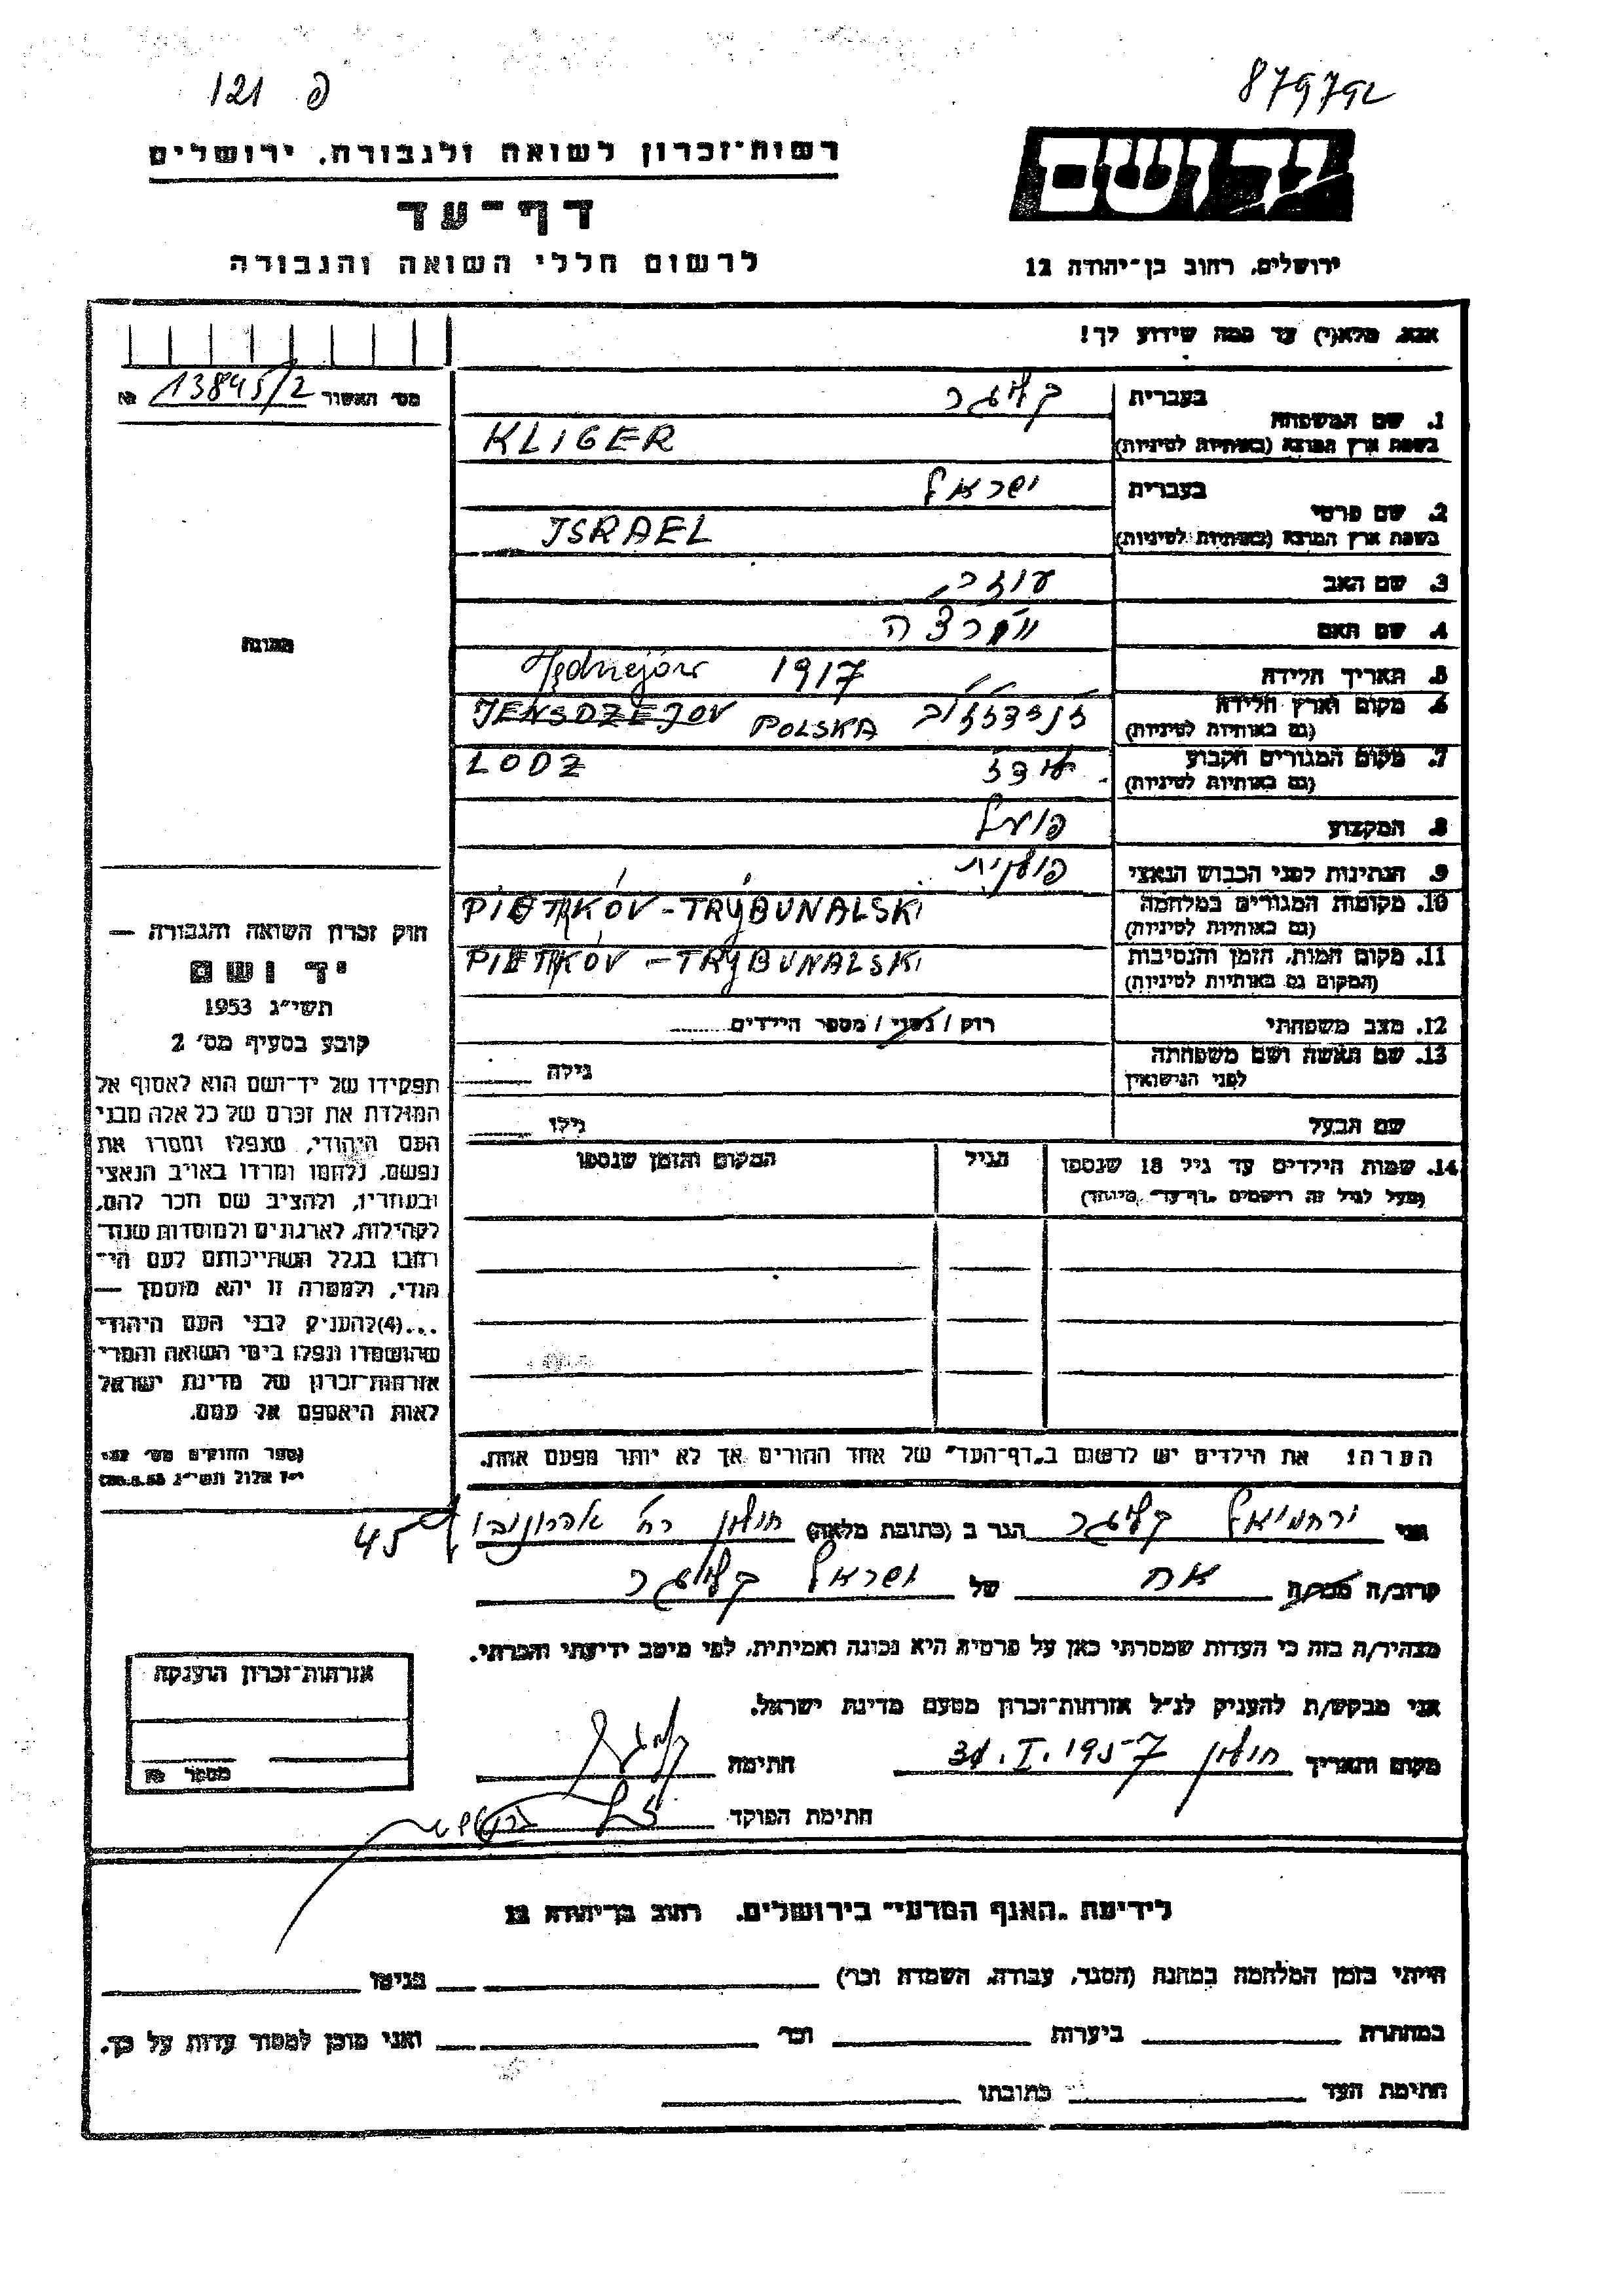 879792
פ 121
יד ושם
רשות־זכרון לשואה ולגבורה. ירושלים
דף־עד
לרשום חללי השואה והגבורה
ירושלים, רחוב בן־יהודה 12
אנא, מלא(י) עד כמה שידוע לך!
מס׳ האשור 13845/2 №
1. שם המשפחה
בעברית
קליגר
בשפת ארץ המוצא (באותיות לטיניות)
KLIGER
2. שם פרטי
בעברית
ישראל
בשפת ארץ המוצא (באותיות לטיניות)
ISRAEL
3. שם האב
4. שם האם
5. תאריך הלידה
1917
Jędrzejów
6. מקום וארץ הלידה
(גם באותיות לטיניות)
JENSDZEJOV POLSKA
7. מקום המגורים הקבוע
(גם באותיות לטיניות)
לודז LODZ
8. המקצוע
פועל
9. הנתינות לפני הכבוש הנאצי
פולנית
10. מקומות המגורים במלחמה
(גם באותיות לטיניות)
PIETRKÓV-TRYBUNALSKI
11. מקום המות, הזמן והנסיבות
(המקום גם באותיות לטיניות)
PIETRKÓV-TRYBUNALSKI
12. מצב משפחתי
רווק / נשוי / מספר הילדים
13. שם האשה ושם משפחתה
לפני הנישואין
גילה
שם הבעל
גילו
14. שמות הילדים עד גיל 18 שנספו
(מעל לגיל זה רושמים „דף־עד״ מיוחד)
הגיל
המקום והזמן שנספו
הערה: את הילדים יש לרשום ב„דף־העד״ של אחד ההורים אך לא יותר מפעם אחת.
תמונה
חוק זכרון השואה והגבורה —
יד ושם
תשי״ג 1953
קובע בסעיף מס׳ 2
תפקידו של יד־ושם הוא לאסוף אל
המולדת את זכרם של כל אלה מבני
העם היהודי, שנפלו ומסרו את
נפשם, נלחמו ומרדו באויב הנאצי
ובעוזריו, ולהציב שם וזכר להם,
לקהילות, לארגונים ולמוסדות שנח־
רבו בגלל השתייכותם לעם הי־
הודי, ולמטרה זו יהא מוסמך —
...(4)להעניק לבני העם היהודי
שהושמדו ונפלו בימי השואה והמרי
אזרחות־זכרון של מדינת ישראל
לאות היאספם אל עמם.
(ספר החוקים מס׳ 132
י״ז אלול תשי״ג 28.8.53)
אני ירחמיאל קליגר הגר ב (כתובת מלאה) חולון רח׳ אהרונוביץ 45
קרוב/ה מכר/ה אח של ישראל קליגר
מצהיר/ה בזה כי העדות שמסרתי כאן על פרטיה היא נכונה ואמיתית, לפי מיטב ידיעתי והכרתי.
אני מבקש/ת להעניק לנ״ל אזרחות־זכרון מטעם מדינת ישראל.
מקום ותאריך חולון 31.I.1957 חתימה
חתימת הפוקד
אזרחות־זכרון הוענקה
מספר №
לידיעת „האגף המדעי״ בירושלים. רחוב בן־יהודה 12
הייתי בזמן המלחמה במחנה (הסגר, עבודה, השמדה וכו׳) בגיטו
במחתרת ביערות וכו׳ ואני מוכן למסור עדות על כך.
חתימת העד כתובתו